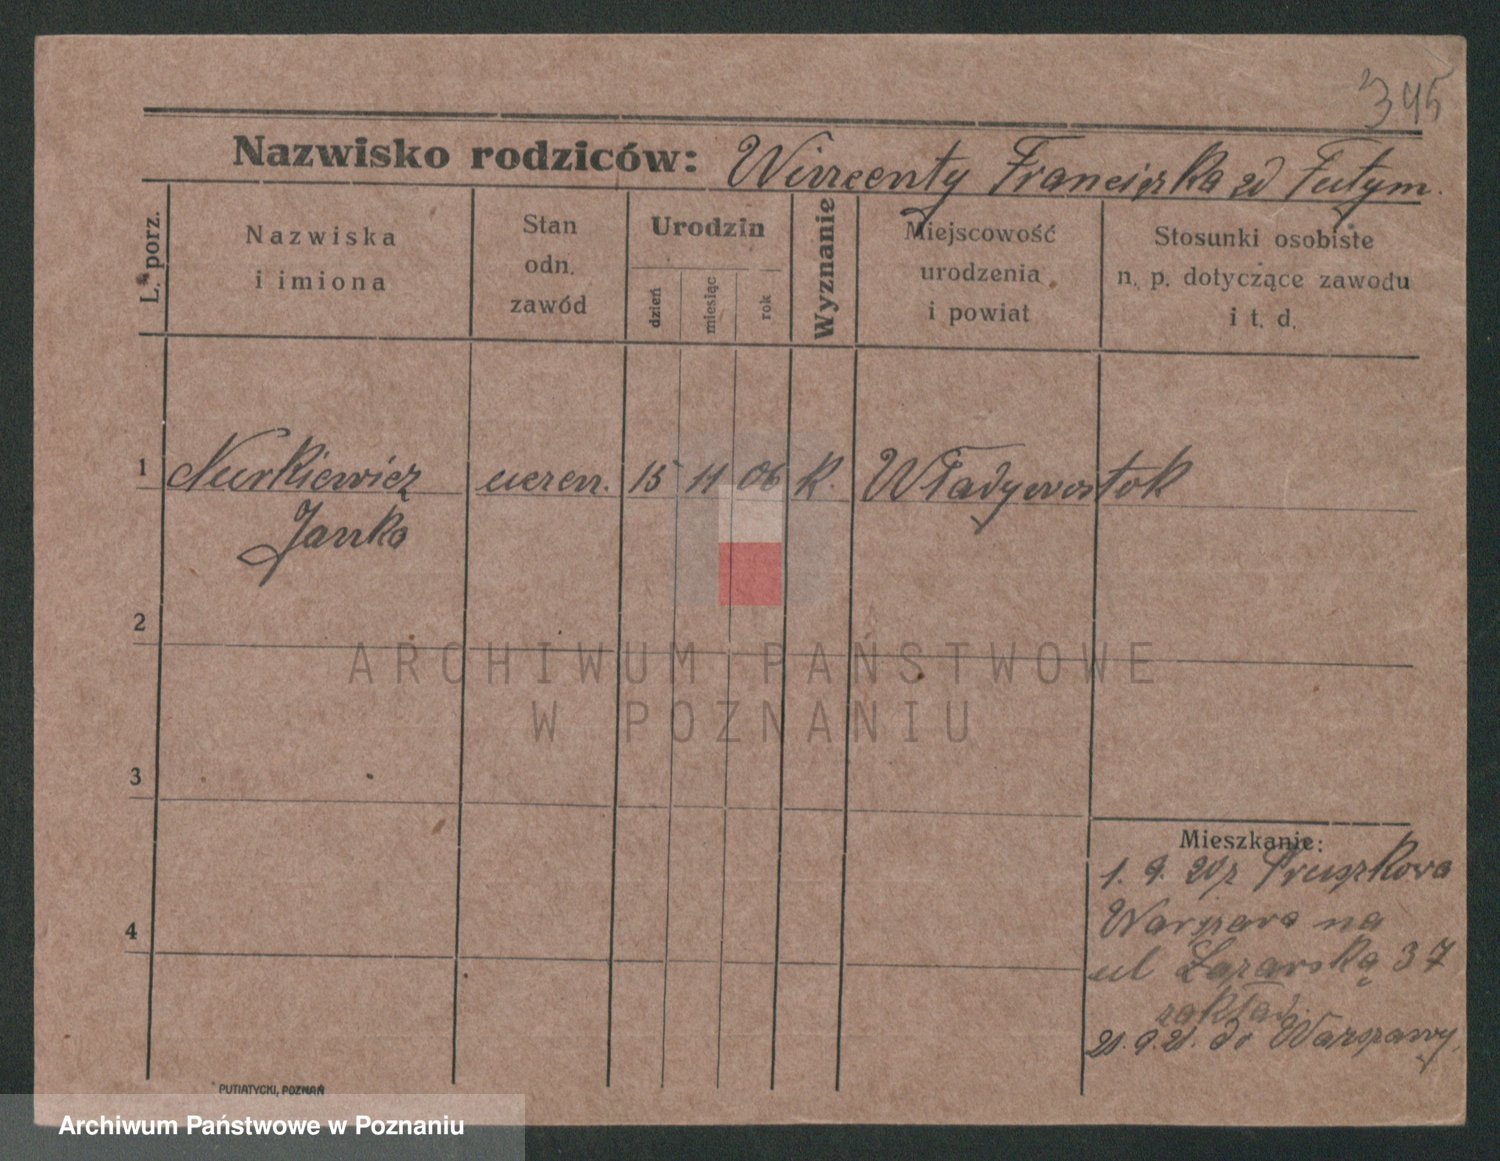 345
Nazwisko rodziców: Wincenty Franciszka zd Futym.
L. porz.
Nazwiska
i imiona
Stan
odn.
zawód
Urodzin
dzień
miesiąc
rok
Wyznanie
Miejscowość
urodzenia
i powiat
Stosunki osobiste
n. p. dotyczące zawodu
i t. d.
1 Nurkiewicz uczen. 15 11 06 K. Władywostok
Janko
2
ARCHIWUM PAŃSTWOWE
W POZNANIU
3
Mieszkanie:
1. 9. 20 z Pruszkowa
Warszawa na
4
ul Łazarską 37
zakład.
21.9.21. do Warszawy.
PUTIATYCKI, POZNAŃ
Archiwum Państwowe w Poznaniu